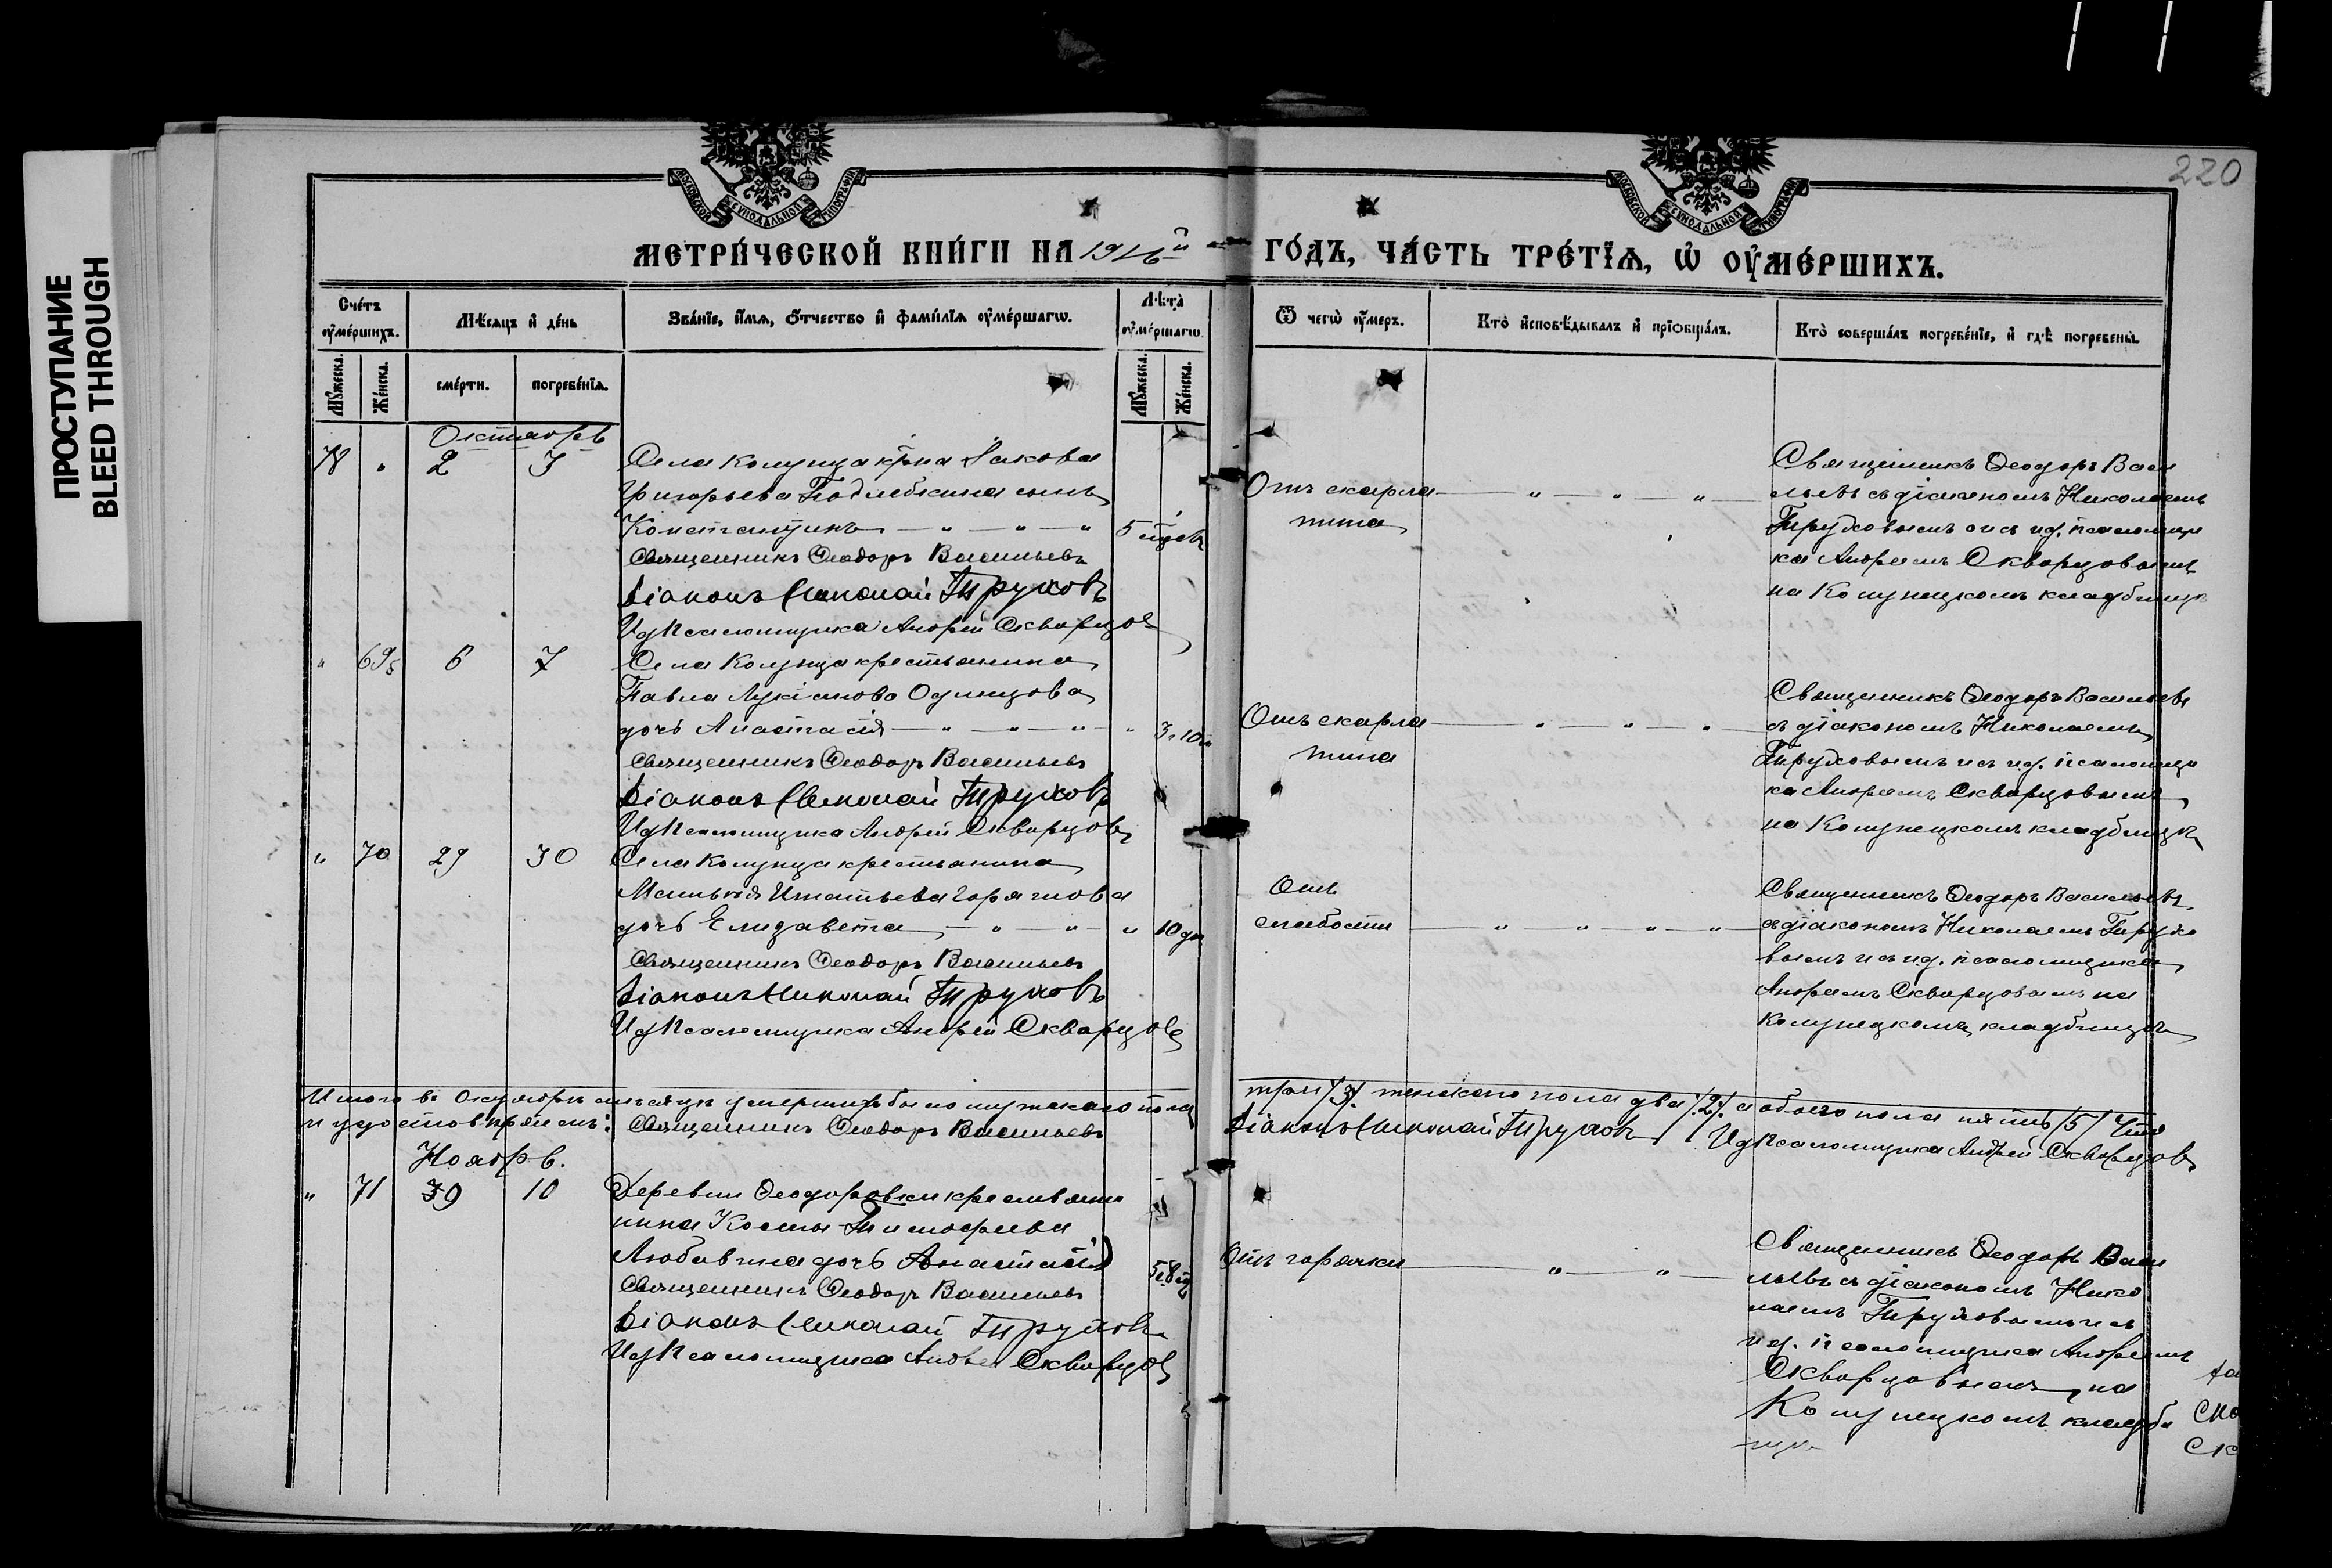 ПРОСТУПАНИЕ
BLEED THROUGH
220
МОСКОВСКОЙ СѴНОДАЛЬНОЙ ТИПОГРАФІИ
МОСКОВСКОЙ СѴНОДАЛЬНОЙ ТИПОГРАФІИ
МЕТРИ́ЧЕСКОЙ КНИ́ГИ НА 1916й ГО́ДЪ, ЧА́СТЬ ТРЕ́ТЇѦ, Ѡ҆ ОУ҆МЕ́РШИХЪ.
Сче́тъ оу҆ме́ршихъ.
Мѣ́сяцъ и҆ де́нь
Зва́нїе, и҆́мя, ѻ҆́тчество и҆ фами́лїя оу҆ме́ршагѡ.
Лѣ́та̀ оу҆ме́ршагѡ.
Ѿ чегѡ̀ оу҆́меръ.
Кто̀ и҆сповѣ́дывалъ и҆ прїѡбща́лъ.
Кто̀ соверша́лъ погребе́нїе, и҆ гдѣ̀ погребены̀.
Мꙋ́жеска.
Же́нска.
сме́рти.
погребе́нїя.
Мꙋ́жеска.
Же́нска.
Октябрь
78 " 2 3 Села Колунца кр-на Іакова
Григорьева сынъ
Константинъ — " — " — " 5
Священникъ Ѳеодоръ Васильевъ
Діаконъ Николай Труховъ
Ид Псаломщика Андрей Скворцовъ
Отъ скарла — " — " — "
тина
Священникъ Ѳеодоръ Васи
льевъ съ діакономъ Николаемъ
Труховымъ и съ и.д. псаломщи
ка Андреемъ Скворцовымъ
на Колунецкомъ кладбищѣ
" 69 6 7 Села Колунца крестьянина
Павла Лукіанова Одинцова
дочь Анастасія — " — " — " " 3 10
Священникъ Ѳеодоръ Васильевъ
Діаконъ Николай Труховъ
Ид Псаломщика Андрей Скворцовъ
Отъ скарла — " — " — "
тина
Священникъ Ѳеодоръ Васильевъ
съ діакономъ Николаемъ
Труховымъ и съ и.д. псаломщи
ка Андреемъ Скворцовымъ
на Колунецкомъ кладбищѣ
" 70 29 30 Села Колунца крестьянина
Игнатьева Горячова
дочь Елизавета — " — " — " 10 дн
Священникъ Ѳеодоръ Васильевъ
Діаконъ Николай Труховъ
Ид Псаломщика Андрей Скворцовъ
Отъ
слабости — " — " — " — "
Священникъ Ѳеодоръ Васильевъ
съ діакономъ Николаемъ Трухо
вымъ и съ и.д. псаломщика
Андреемъ Скворцовымъ на
Колунецкомъ кладбищѣ
Итого въ Октябрѣ мѣсяцѣ умершихъ было мужскаго пола три /3/ женскаго пола два /2/ а обоего пола пять /5/ Что
и удостовѣряемъ: Священникъ Ѳеодоръ Васильевъ Діаконъ Николай Труховъ Ид Псаломщика Андрей Скворцовъ
Ноябрь.
" 71 9 10 Деревни Ѳеодоровки крестьяни
нина Космы Тимофеева
Любавина дочь Анастасія 5 8
Священникъ Ѳеодоръ Васильевъ
Діаконъ Николай Труховъ
Ид Псаломщика Андрей Скворцовъ
Отъ горячки — " — " —
Священникъ Ѳеодоръ Васи
льевъ съ діакономъ Нико
лаемъ Труховымъ и съ
и.д. псаломщика Андреемъ
Скворцовымъ, на
Колунецкомъ кладби
щѣ